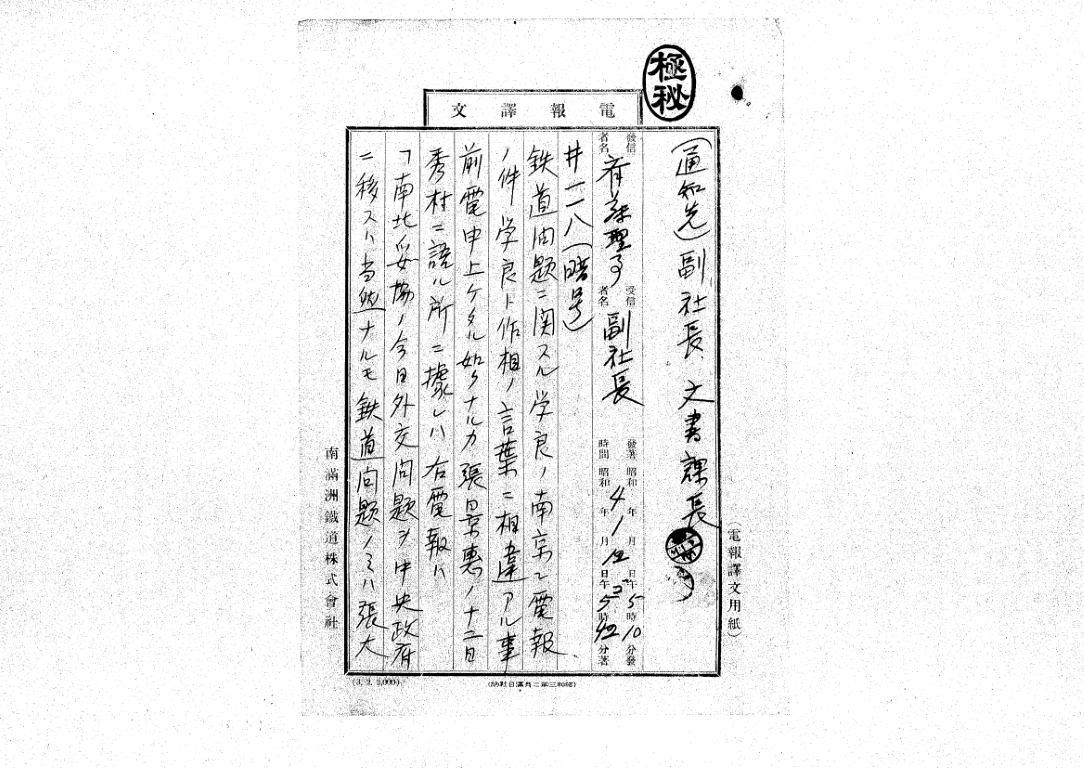 極秘
電報譯文
(通知先)副社長、文書課長
發信者名
斉藤理事
受信者名
副社長
發著時間
昭和4年1月12日午后5時10分發
昭和 年 月 日午 5時42分著
井一一八(暗号)
鉄道問題ニ関スル学良ノ南京ヘ電報
ノ件学良ト作相ノ言葉ニ相違アル事
前電申上ケタル如クナルカ張景惠ノ十二日
秀村ニ語ル所ニ據レハ右電報ハ
「南北妥協ノ今日外交問題ヲ中央政府
ニ移スハ当然ナルモ鉄道問題ノミハ張大
(電報譯文用紙)
南滿洲鐵道株式會社
(3. 2. 5,000)